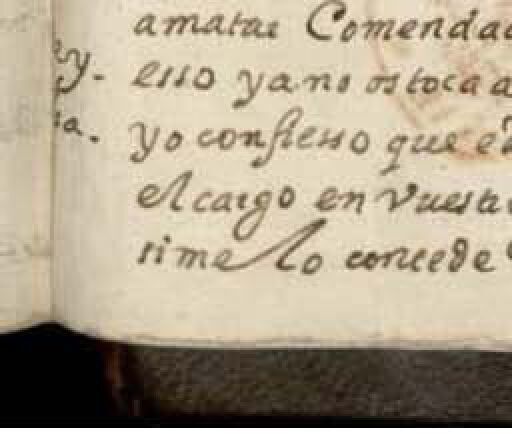 amatar Comenda
y. esso ya no os toca a
ia. yo confiesso que
el cargo en Vuest
si me lo concede